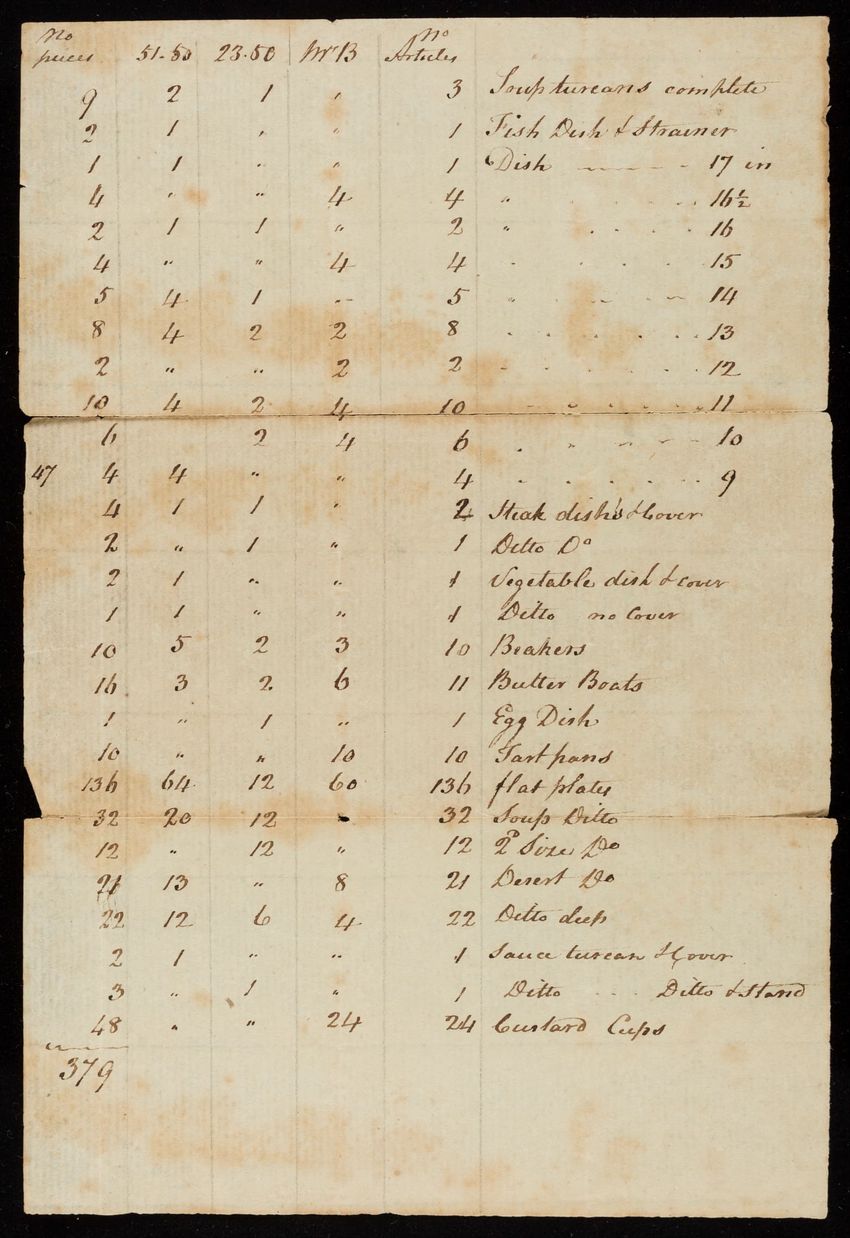 No pieces 51-50 23.50 Mr B No Articles
9 2 1 " 3 Soup tureans complete
2 1 " " 1 Fish Dish & Strainer
1 1 " " 1 Dish - - - - 17 in
4 " " 4 4 " - - - - 16 1/2
2 1 1 " 2 " - - - - 16
4 " " 4 4 " - - - - 15
5 4 1 " 5 " - - - - 14
8 4 2 2 8 " - - - - 13
2 " " 2 2 " - - - - 12
10 4 2 4 10 " - - - - 11
6 2 4 6 " - - - - 10
47 4 4 " " 4 " - - - - 9
4 1 1 " 2 Steak dish's & Cover
2 " 1 " 1 Ditto Do
2 1 " " 1 Vegetable dish & cover
1 1 " " 1 Ditto no Cover
10 5 2 3 10 Beakers
16 3 2 6 11 Butter Boats
1 " 1 " 1 Egg Dish
10 " " 10 10 Tartpans
136 64 12 60 136 flat plates
32 20 12 " 32 Soup Ditto
12 " 12 " 12 2d Size Do
21 13 " 8 21 Desert Do
22 12 6 4 22 Ditto deep
2 1 " " 1 Sauce turean & Cover
3 " 1 " 1 Ditto - - - Ditto & Stand
48 " " 24 24 Custard Cups
379